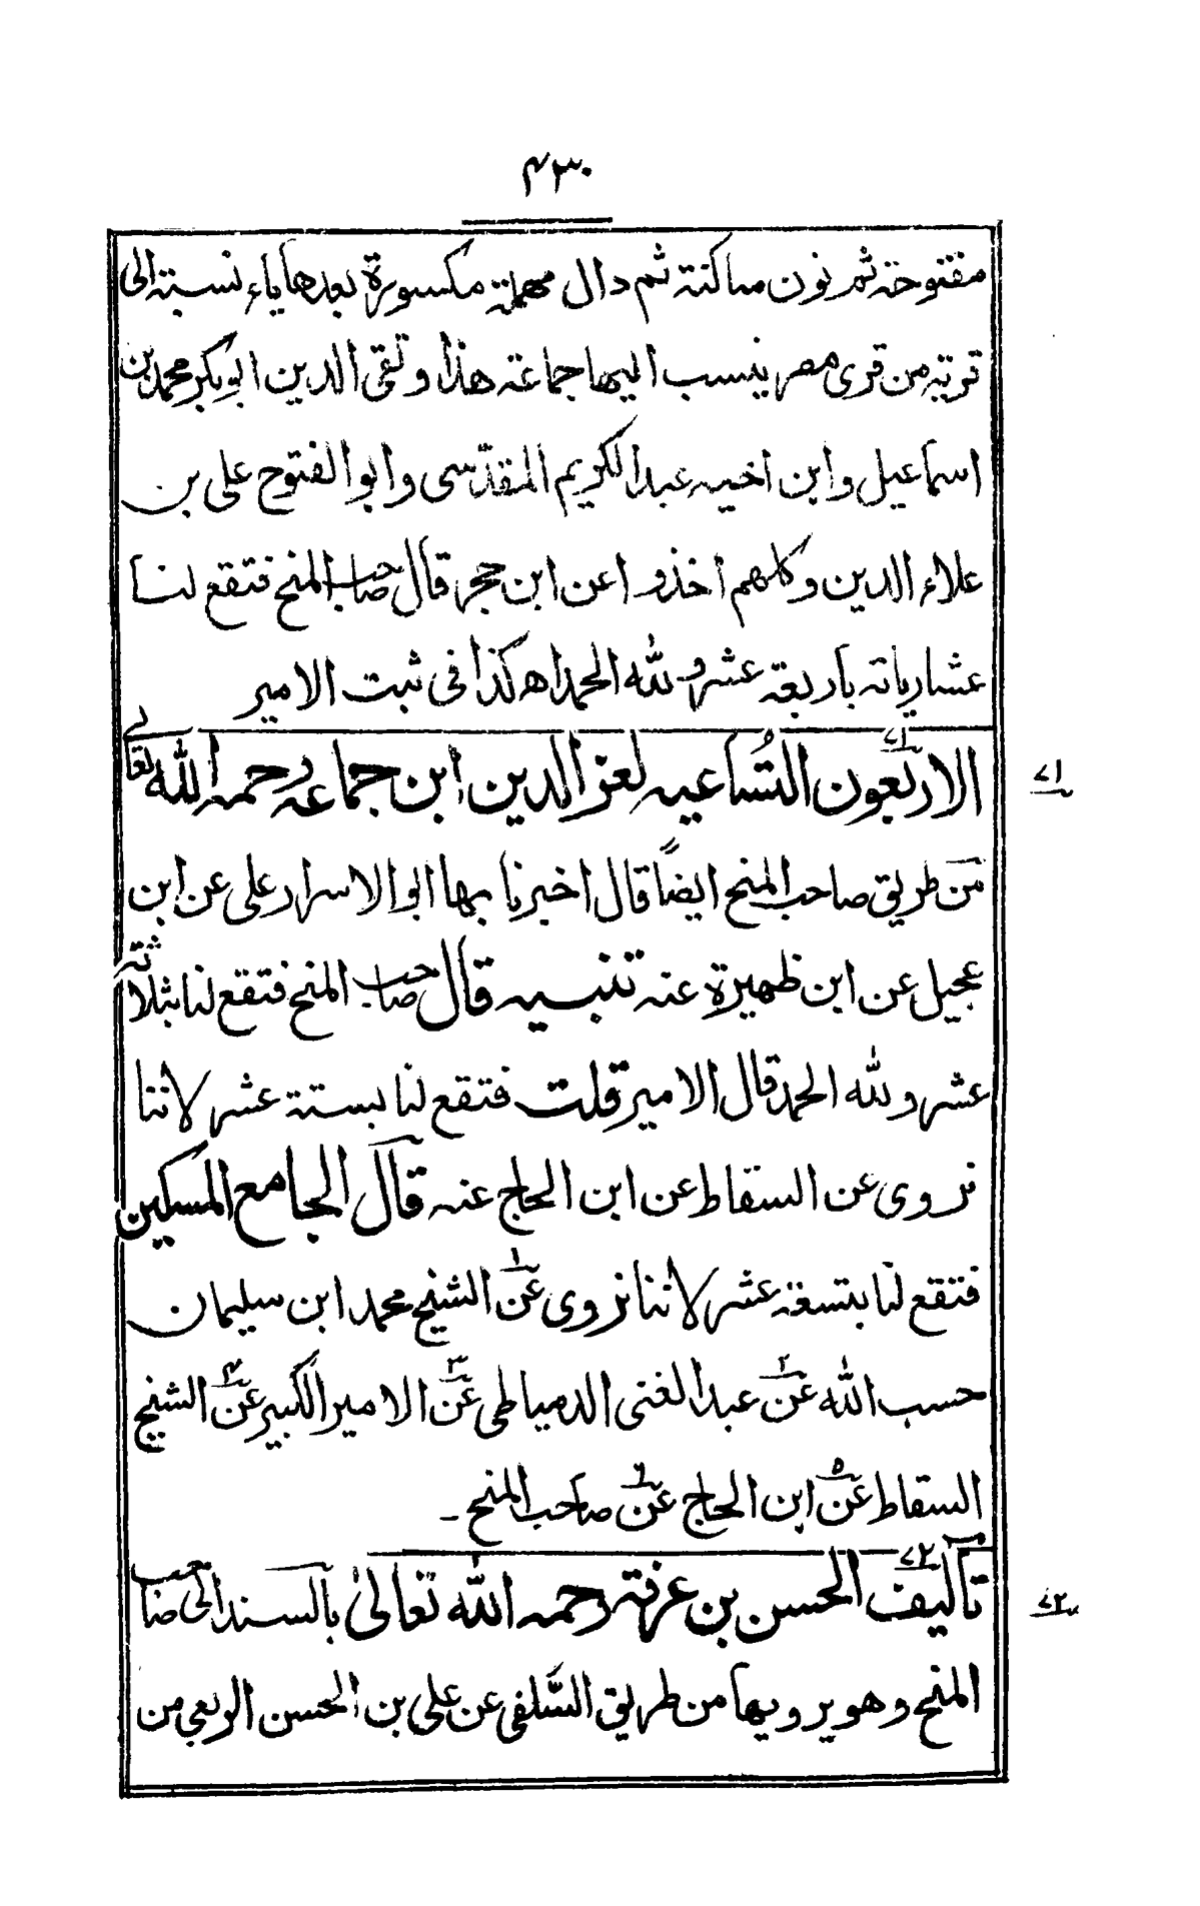 ۴۳۰
مفتوحة ثم نون ساكنة ثم دال مهملة مكسورة بعدها ياء نسبة الى
قرية من قرى مصر ينسب اليها جماعة هذا وتقى الدين ابو بكر محمد بن
اسماعيل وابن اخيه عبد الكريم المقدسى وابو الفتوح على بن
علاء الدين وكلهم اخذوا عن ابن حجر قال صاحب المنح فتقع لنا
عشارياته باربعة عشر ولله الحمد اه كذا فى ثبت الامير
الاربعون التُساعيه لعز الدين ابن جماعة رحمه الله تعالى
۷۱
۷۱
من طريق صاحب المنح ايضاً قال اخبرنا بها ابو الاسرار على عن ابن
عجيل عن ابن ظهيرة عنه تنبيه قال صاحب المنح فتقع لنا بثلاثة
عشر ولله الحمد قال الامير قلت فتقع لنا بستة عشر لاننا
نروى عن السقاط عن ابن الحاج عنه قال الجامع المسكين
فتقع لنا بتسعة عشر لاننا نروى عن۱ الشيخ محمد ابن سليمان
حسب الله عن۲ عبد الغنى الدمياطى عن۳ الامير الكبير عن۴ الشيخ
السقاط عن۵ ابن الحاج عن۶ صاحب المنح -
۷۲
تآليف الحسن بن عرفة رحمه الله تعالىٰ بالسند الى صاحب
۷۲
المنح وهو يرويها من طريق السَّلفى عن على بن الحسن الربعى من